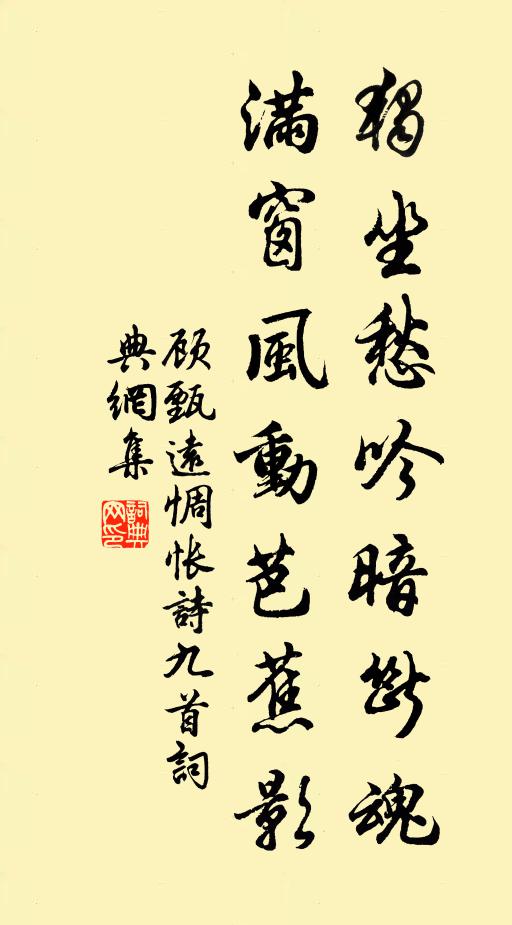 獨坐愁吟暗斷魂
滿窗風動芭蕉影
顧甄遠惆悵詩九首詞
典網集
詞典
网印